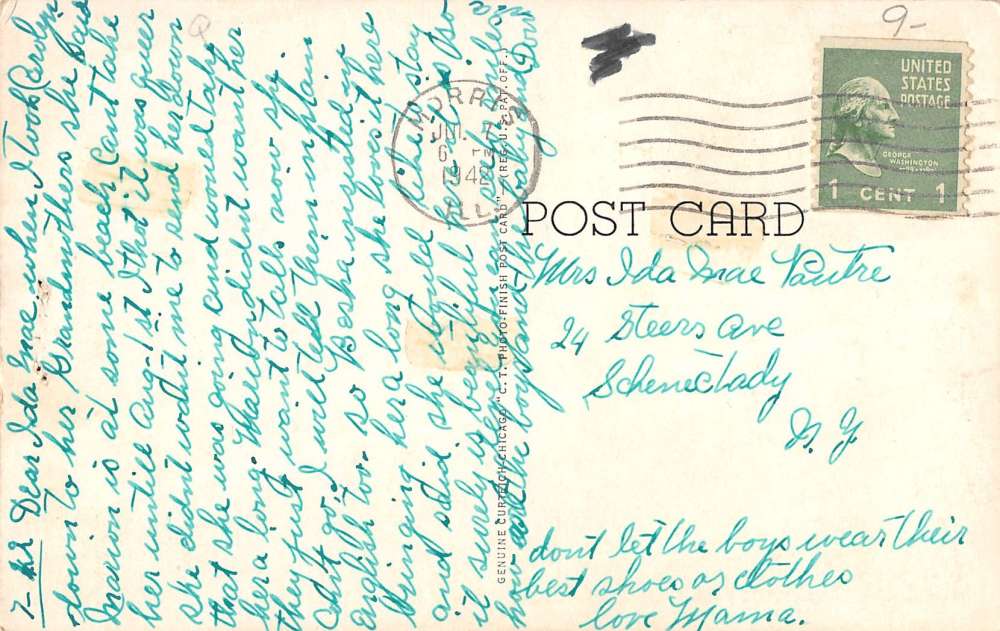 7-42 Dear Ida Mae when I took Carolyn
down to her Grandmothers she said
Marion is at some beach, cant take
her untill Aug 1st I that it was queer
she didnt want me to send her down
that she was going and needed tahr
her a long. Marion didnt want her
they just want to talk now she
cant go. I will tell them in plain
english too. so Besha insisted in
bringing her a long she loves it here
and said she would be in the stay
it surely is beautiful
how are the boys and Whiskey and Dow
9-
MORRIS
JUL 7
6 PM
1942
ILL.
UNITED
STATES
POSTAGE
GEORGE
WASHINGTON
1 CENT 1
POST CARD
GENUINE CURTEICH-CHICAGO "C. T. PHOTO-FINISH POST CARD" (REG. U. S. PAT. OFF.)
Mrs Ida Mae Vautre
24 Steers Ave
Schenectady
N. Y.
dont let the boys wear their
best shoes or clothes
love Mama.